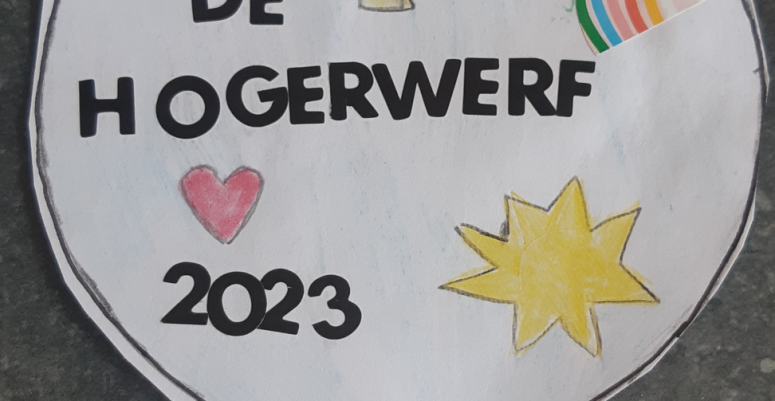 DE
HOGERWERF
2023